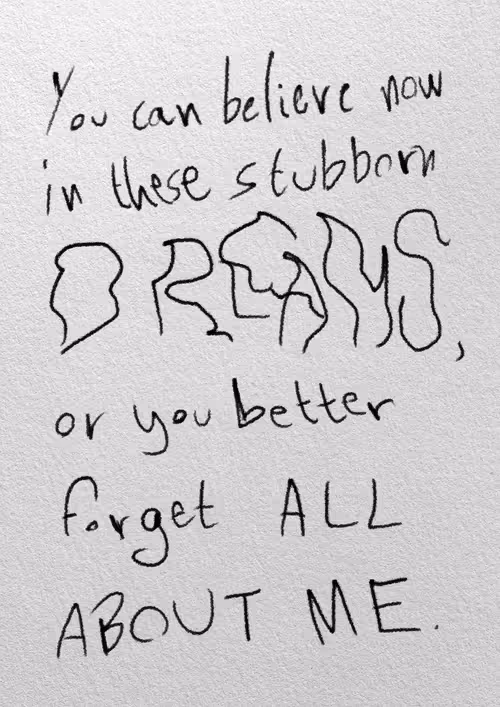 You can believe now
in these stubborn
DREAMS,
or you better
forget ALL
ABOUT ME.